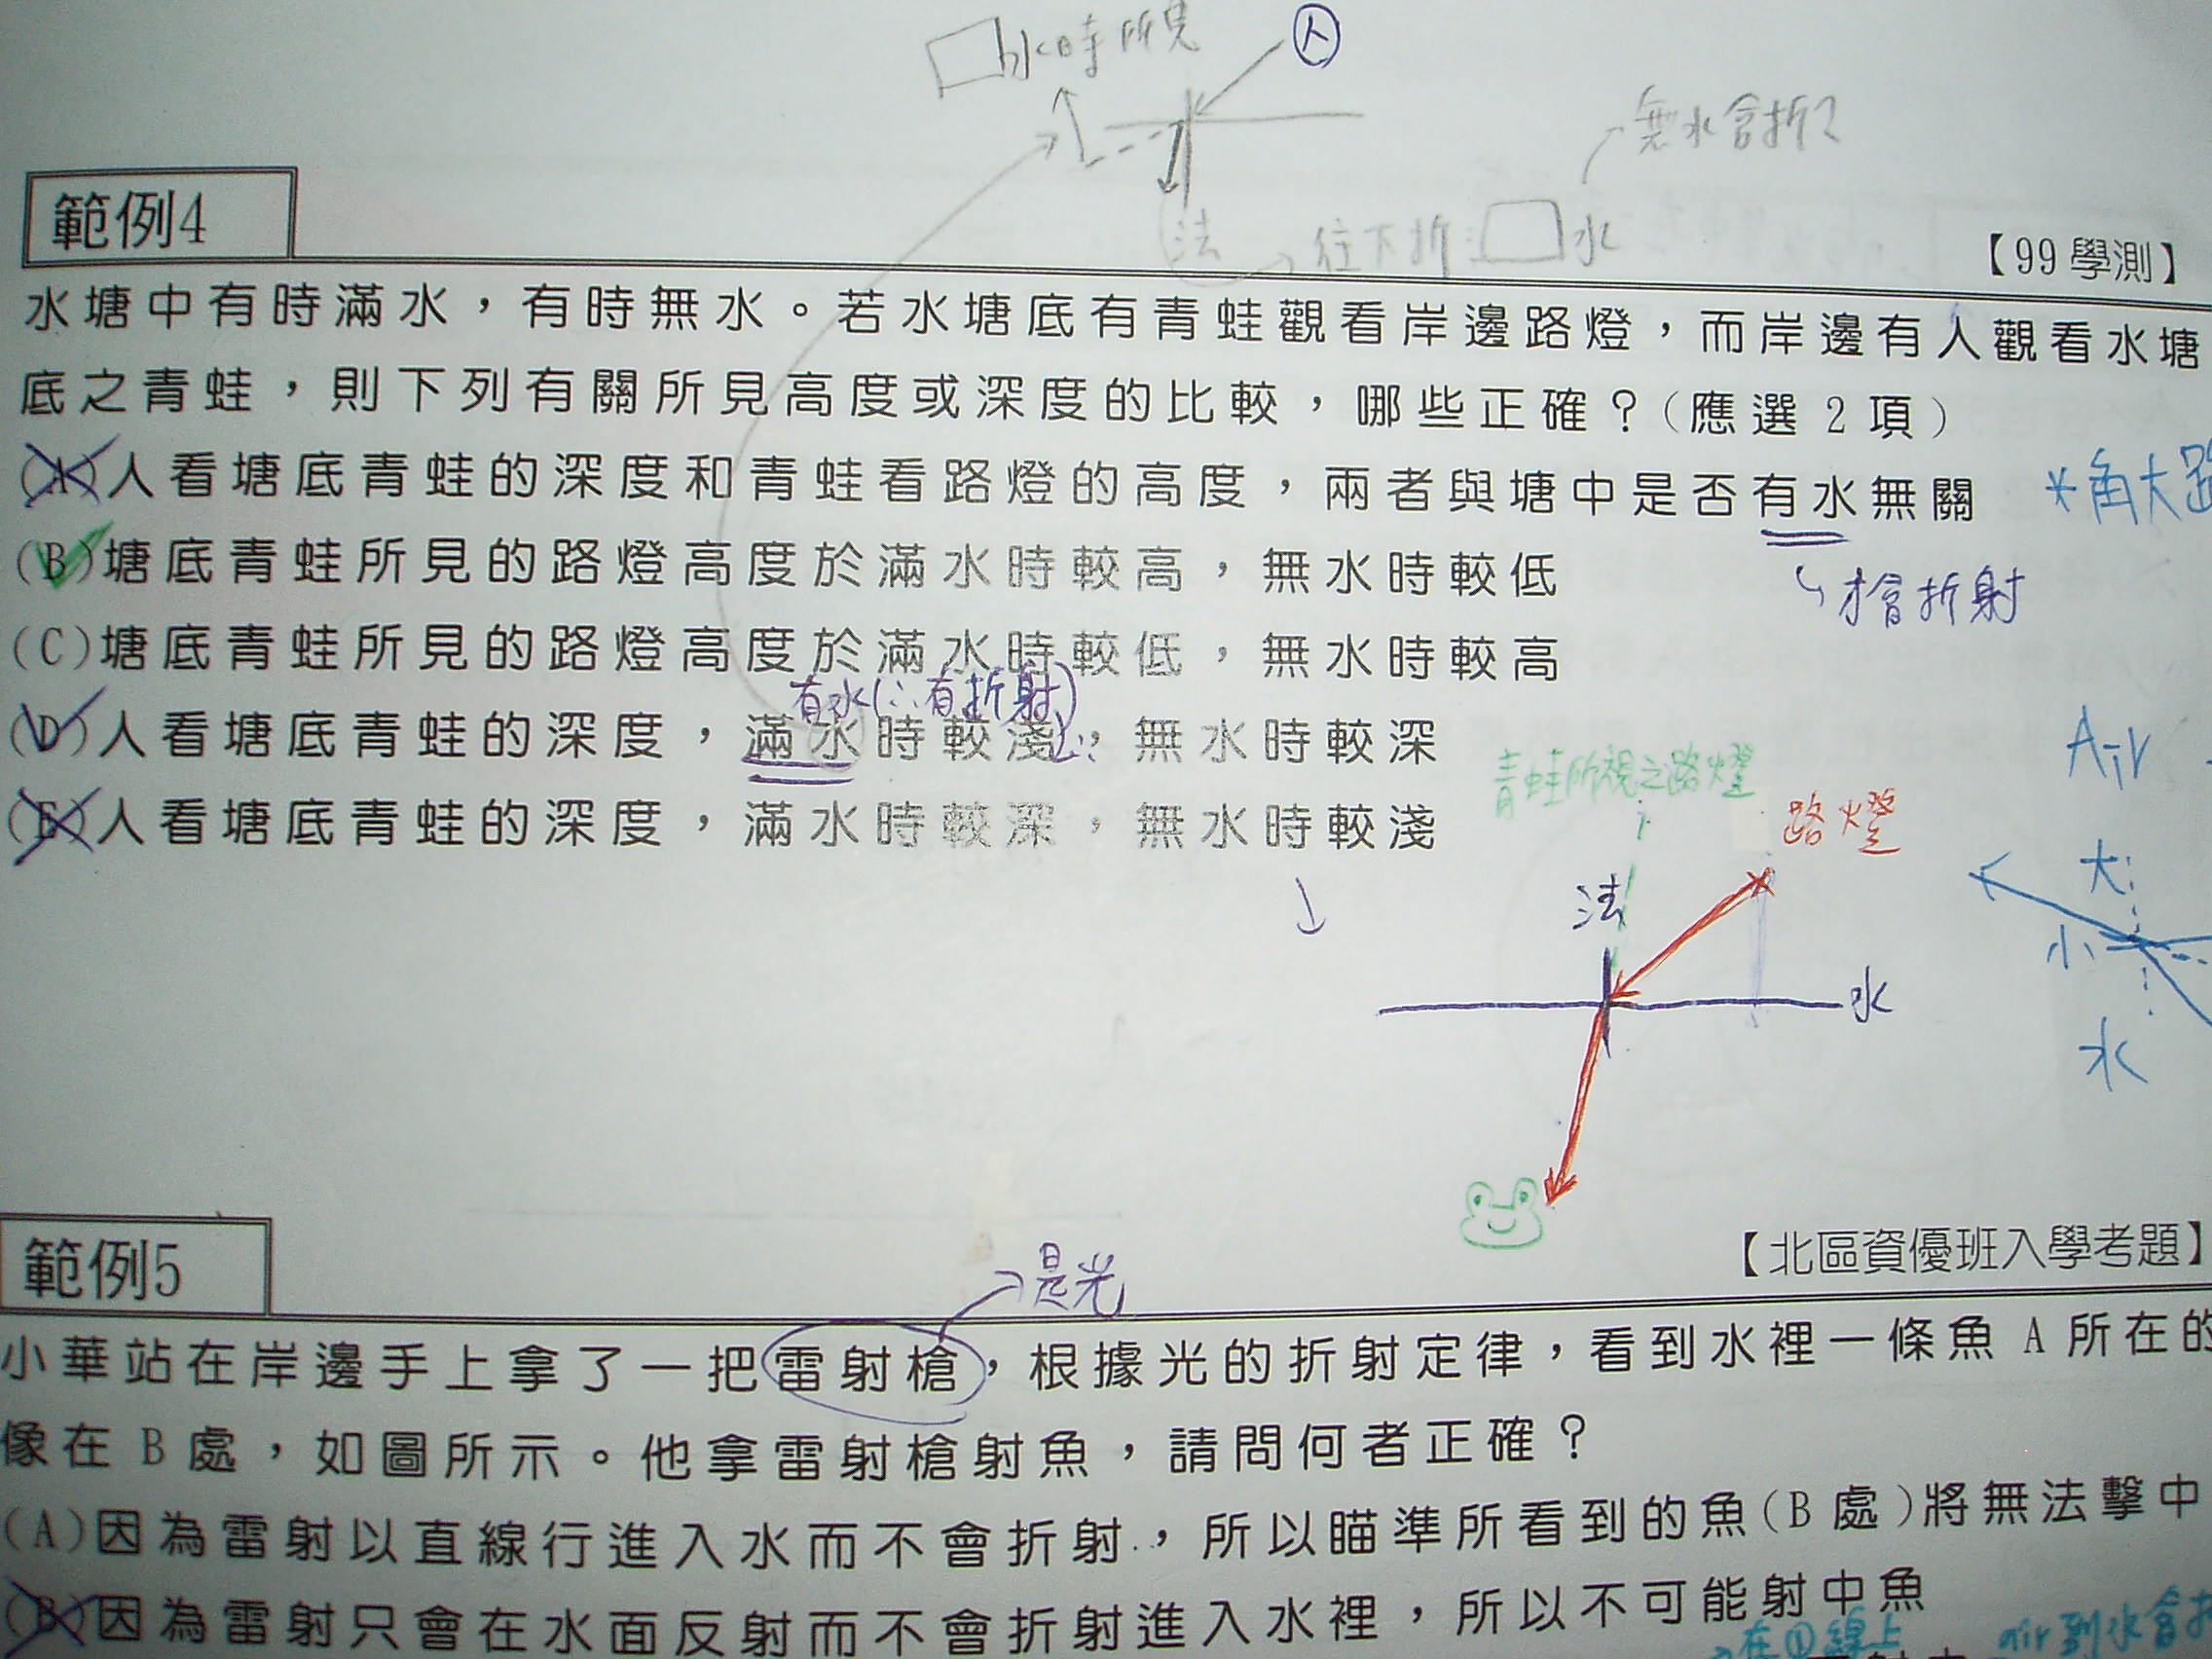 水時所見
人
無水會折
法
往下折
水
範例4
【99學測】
水塘中有時滿水，有時無水。若水塘底有青蛙觀看岸邊路燈，而岸邊有人觀看水塘
底之青蛙，則下列有關所見高度或深度的比較，哪些正確？(應選 2 項)
(A)人看塘底青蛙的深度和青蛙看路燈的高度，兩者與塘中是否有水無關
*角大
(B)塘底青蛙所見的路燈高度於滿水時較高，無水時較低
才會折射
(C)塘底青蛙所見的路燈高度於滿水時較低，無水時較高
有水(∵有折射)
(D)人看塘底青蛙的深度，滿水時較淺，無水時較深
Air
青蛙所視之路燈
(E)人看塘底青蛙的深度，滿水時較深，無水時較淺
路燈
大
法
小
水
水
範例5
【北區資優班入學考題】
是光
小華站在岸邊手上拿了一把雷射槍，根據光的折射定律，看到水裡一條魚 A 所在的
像在 B 處，如圖所示。他拿雷射槍射魚，請問何者正確？
(A)因為雷射以直線行進入水而不會折射，所以瞄準所看到的魚(B 處)將無法擊中
(B)因為雷射只會在水面反射而不會折射進入水裡，所以不可能射中魚
在①線上
air到水會